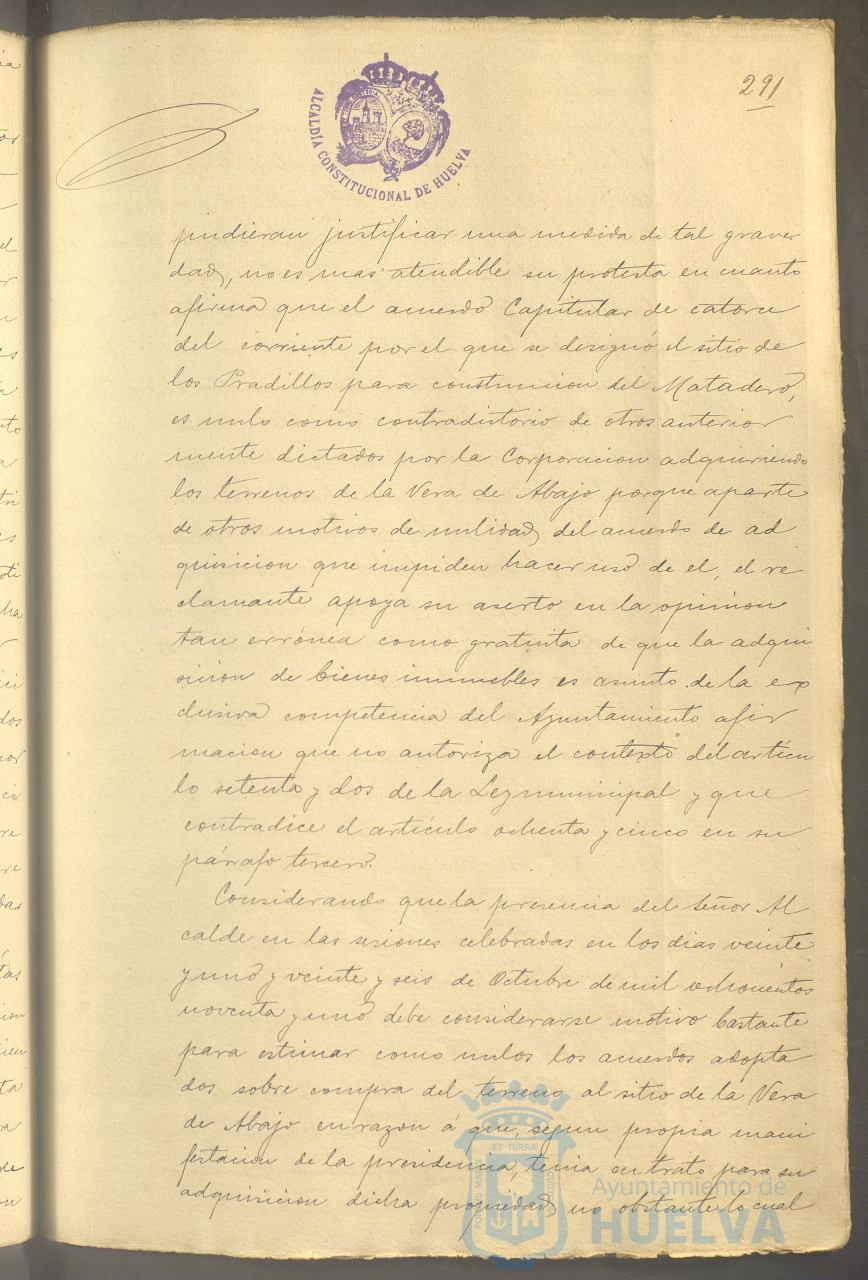 291
ALCALDÍA CONSTITUCIONAL DE HUELVA
pudieran justificar una medida de tal grave
dad, no es mas atendible su protesta en cuanto
afirma que el acuerdo Capitular de catorce
del corriente por el que se designó el sitio de
los Pradillos para construcion del Matadero,
es nulo como contradictorio de otros anterior
mente dictados por la Corporacion adquiriendo
los terrenos de la Vera de Abajo porque aparte
de otros motivos de nulidad, del acuerdo de ad
quisicion que impiden hacer uso de el, el re
clamante apoya su aserto en la opinion
tan errónea como gratuita de que la adqui
sicion de bienes inmuebles es asunto de la ex
clusiva competencia del Ayuntamiento afir
macion que no autoriza el contexto del artícu
lo setenta y dos de la Ley municipal y que
contradice el artículo ochenta y cinco en su
párrafo tercero.
Considerando que la presencia del Señor Al
calde en las sesiones celebradas en los dias veinte
y uno y veinte y seis de Octubre de mil ochocientos
noventa y uno debe considerarse motivo bastante
para estimar como nulos los acuerdos adopta
dos sobre compra del terreno al sitio de la Vera
de Abajo en razon á que, segun propia mani
festacion de la presidencia, tenia en trato para su
adquisicion dicha propiedad, no obstante lo cual
ET TERRÆ
Ayuntamiento de
HUELVA